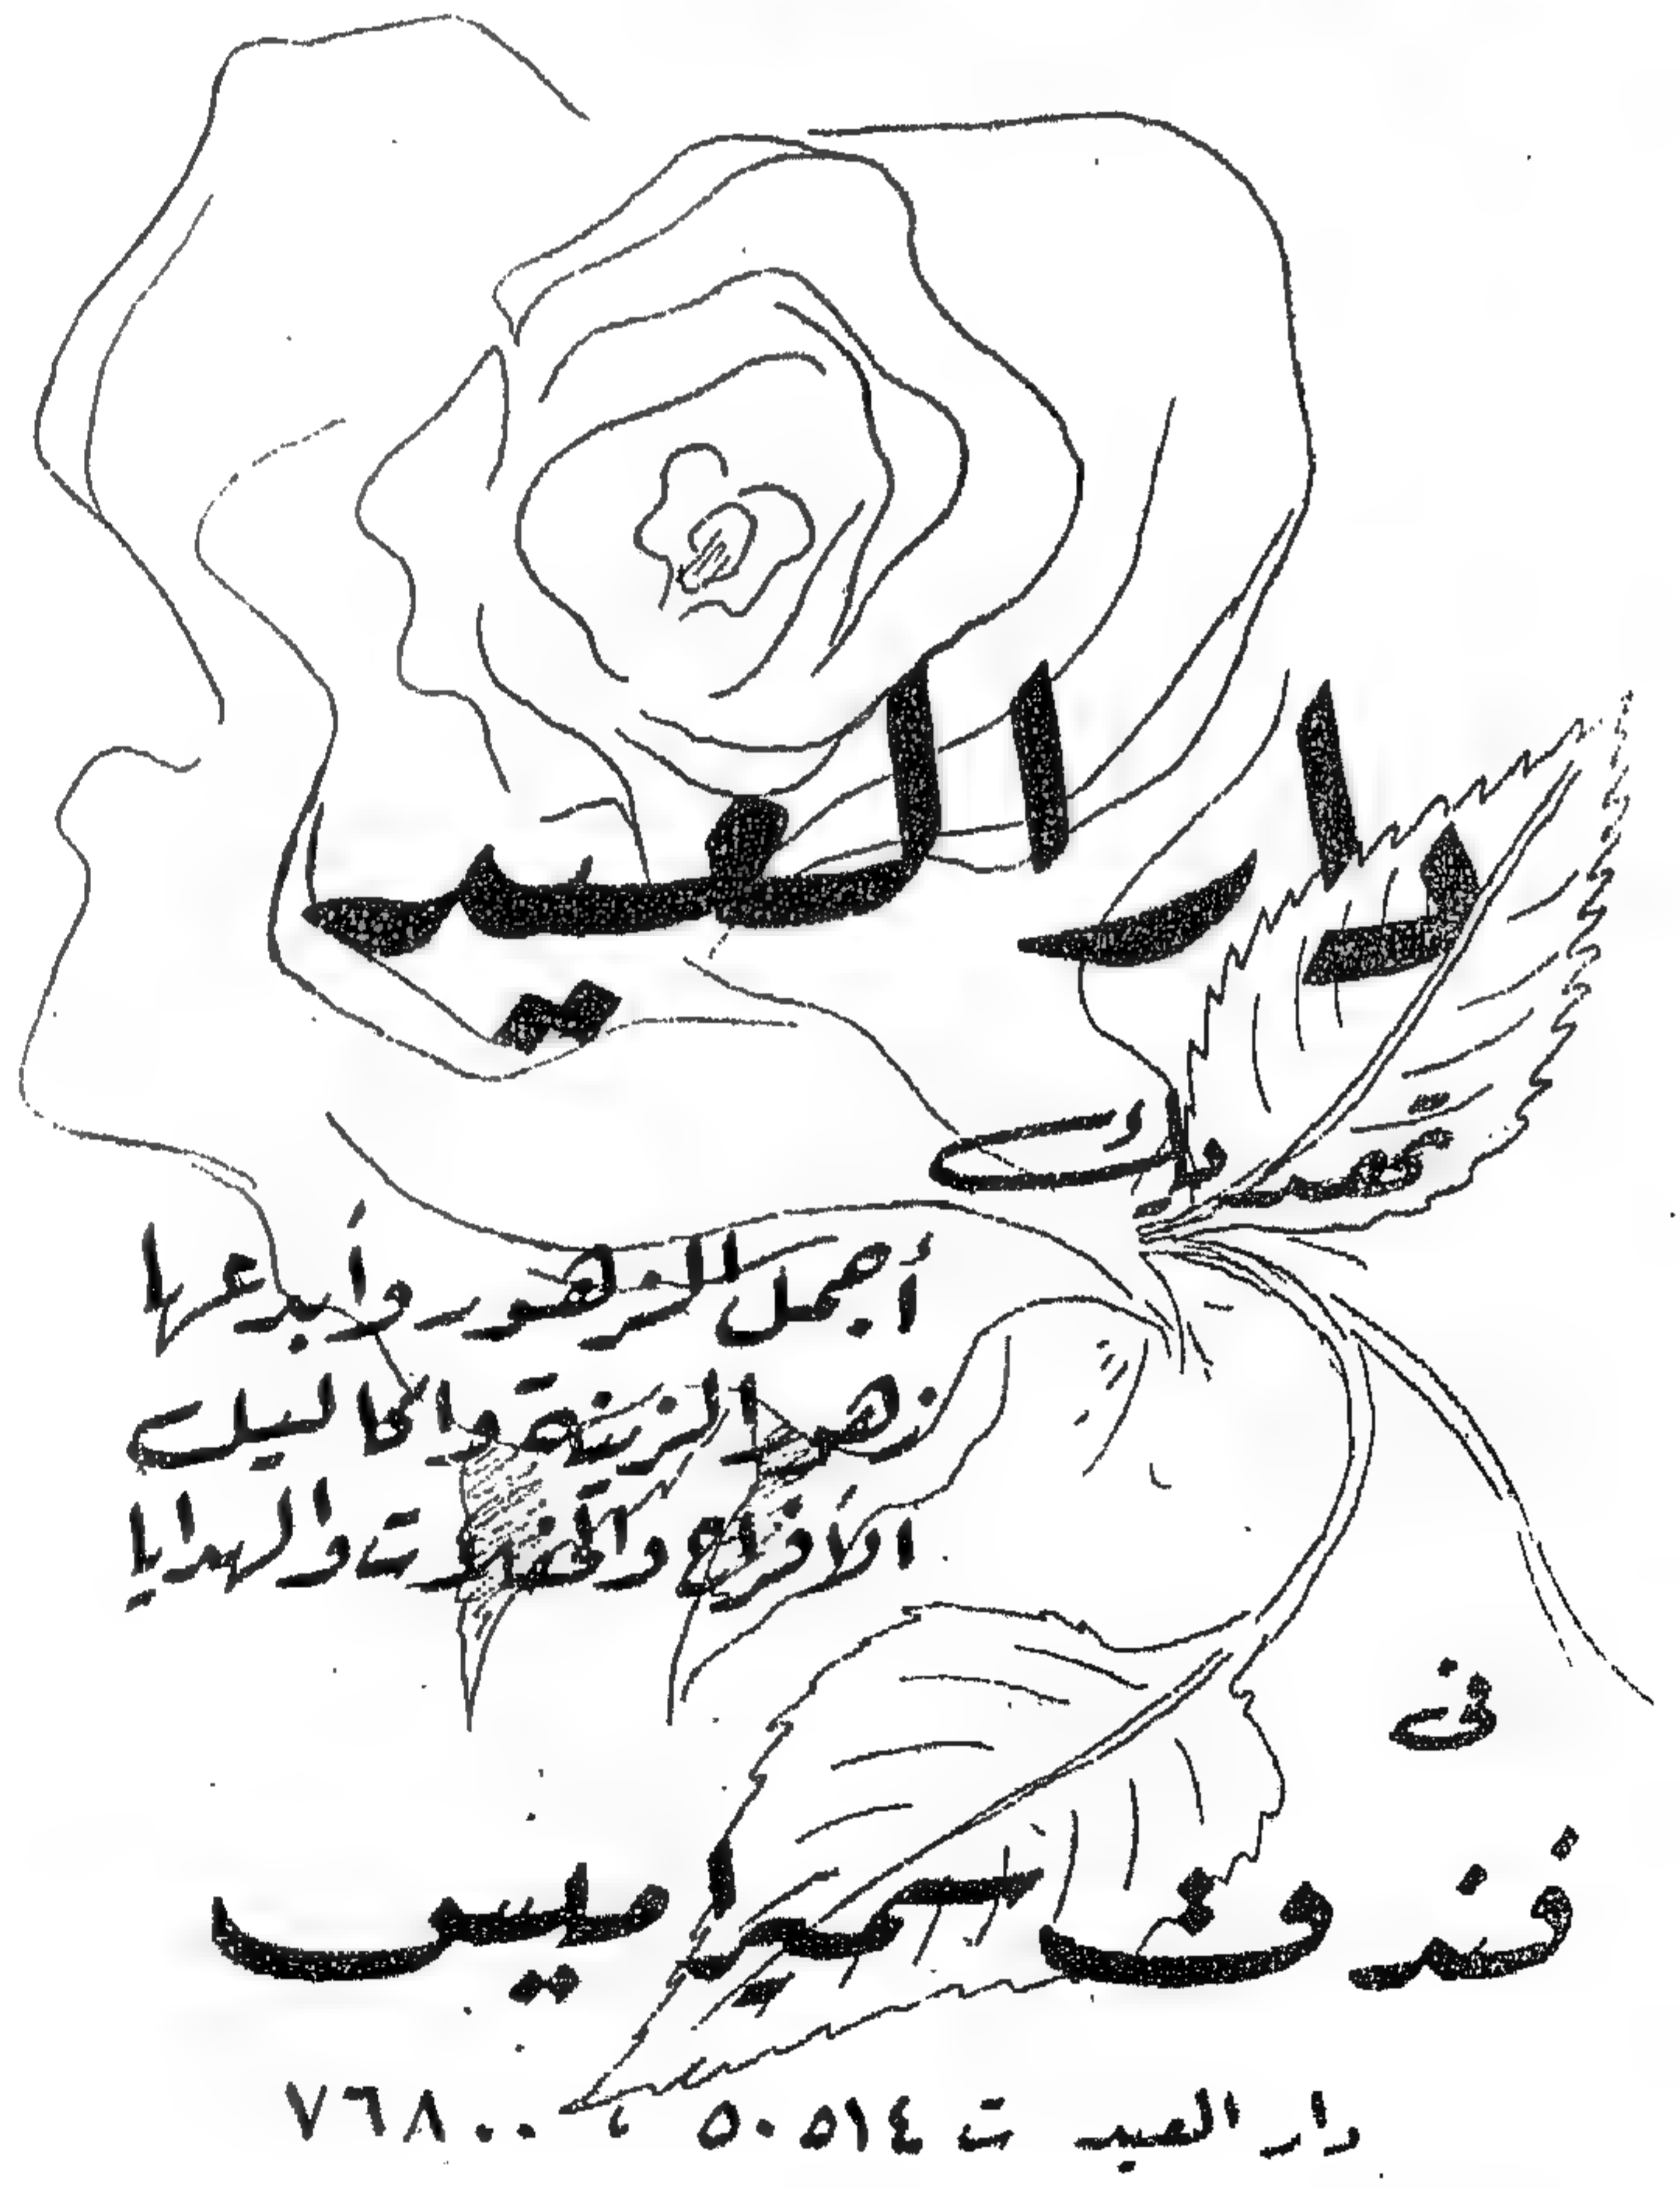 دار العيد
أجمل الزهور وأبدعها
زهر الزينة واكاليل
الأفراح والحفلات والهدايا
فى
فندق سميراميس
دار العيد ت ٥٠٥١٤ ، ٧٦٨٠٠